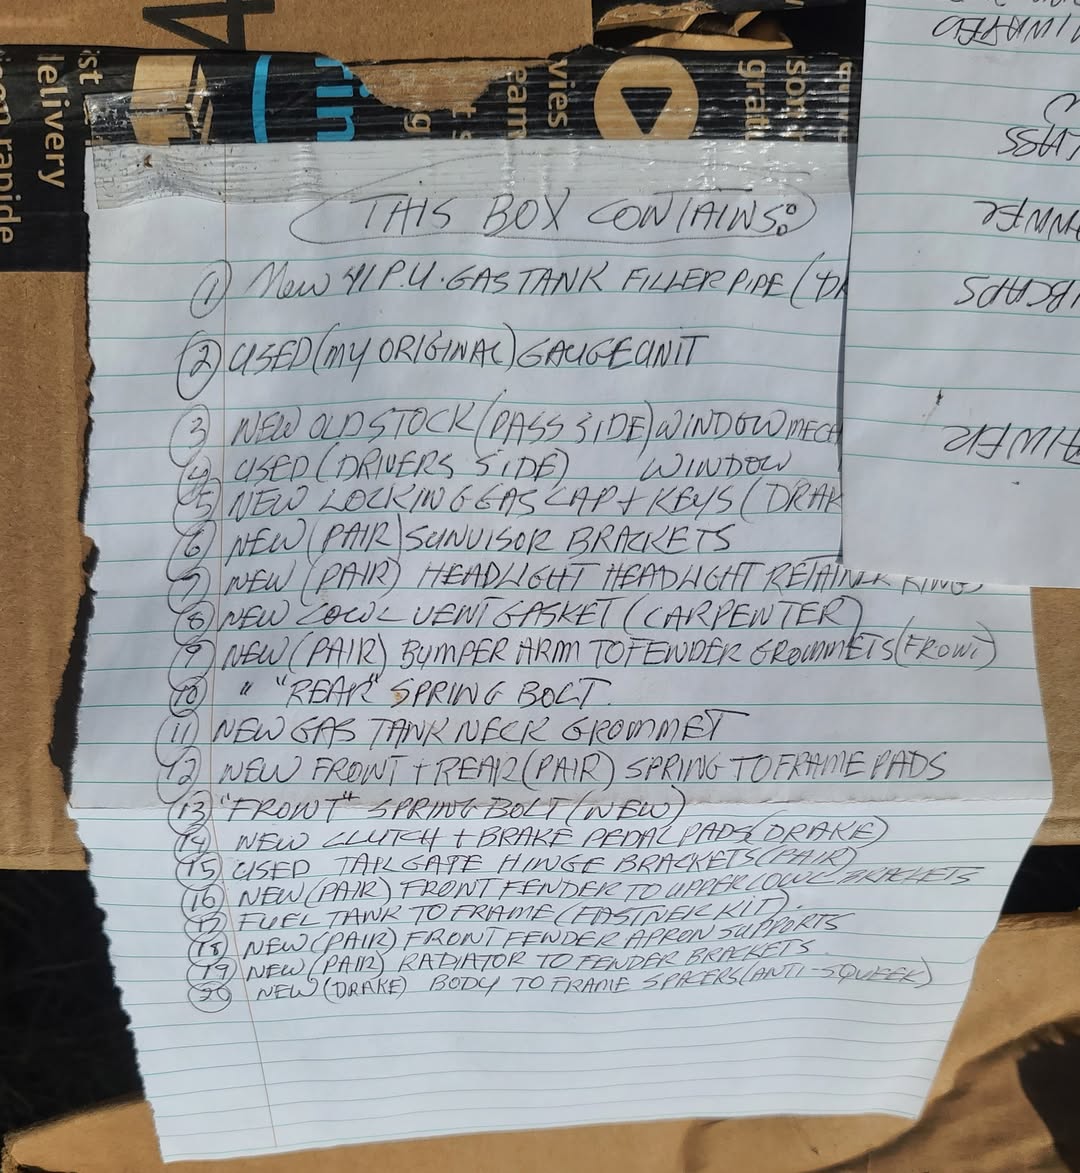 4
ist
elivery
ison rapide
rin
t s
g
eam
vies
gratu
THIS BOX CONTAINS:
① New 41 P.U. GAS TANK FILLER PIPE (DR
② USED (MY ORIGINAL) GAUGE UNIT
③ NEW OLD STOCK (PASS SIDE) WINDOW MECH
④ USED (DRIVERS SIDE) WINDOW
⑤ NEW LOCKING GAS CAP + KEYS (DRAK
⑥ NEW (PAIR) SUNVISOR BRACKETS
⑦ NEW (PAIR) HEADLIGHT HEADLIGHT RETAINER RINGS
⑧ NEW COWL VENT GASKET (CARPENTER)
⑨ NEW (PAIR) BUMPER ARM TO FENDER GROMMETS (FRONT)
⑩ " "REAR" SPRING BOLT.
⑪ NEW GAS TANK NECK GROMMET
⑫ NEW FRONT + REAR (PAIR) SPRING TO FRAME PADS
⑬ "FRONT" SPRING BOLT (NEW)
⑭ NEW CLUTCH + BRAKE PEDAL PADS (DRAKE)
⑮ USED TAILGATE HINGE BRACKETS (PAIR)
⑯ NEW (PAIR) FRONT FENDER TO UPPER COWL BRACKETS
⑰ FUEL TANK TO FRAME (FASTNER KIT).
⑱ NEW (PAIR) FRONT FENDER APRON SUPPORTS
⑲ NEW (PAIR) RADIATOR TO FENDER BRACKETS.
⑳ NEW (DRAKE) BODY TO FRAME SPACERS (ANTI-SQUEEK)